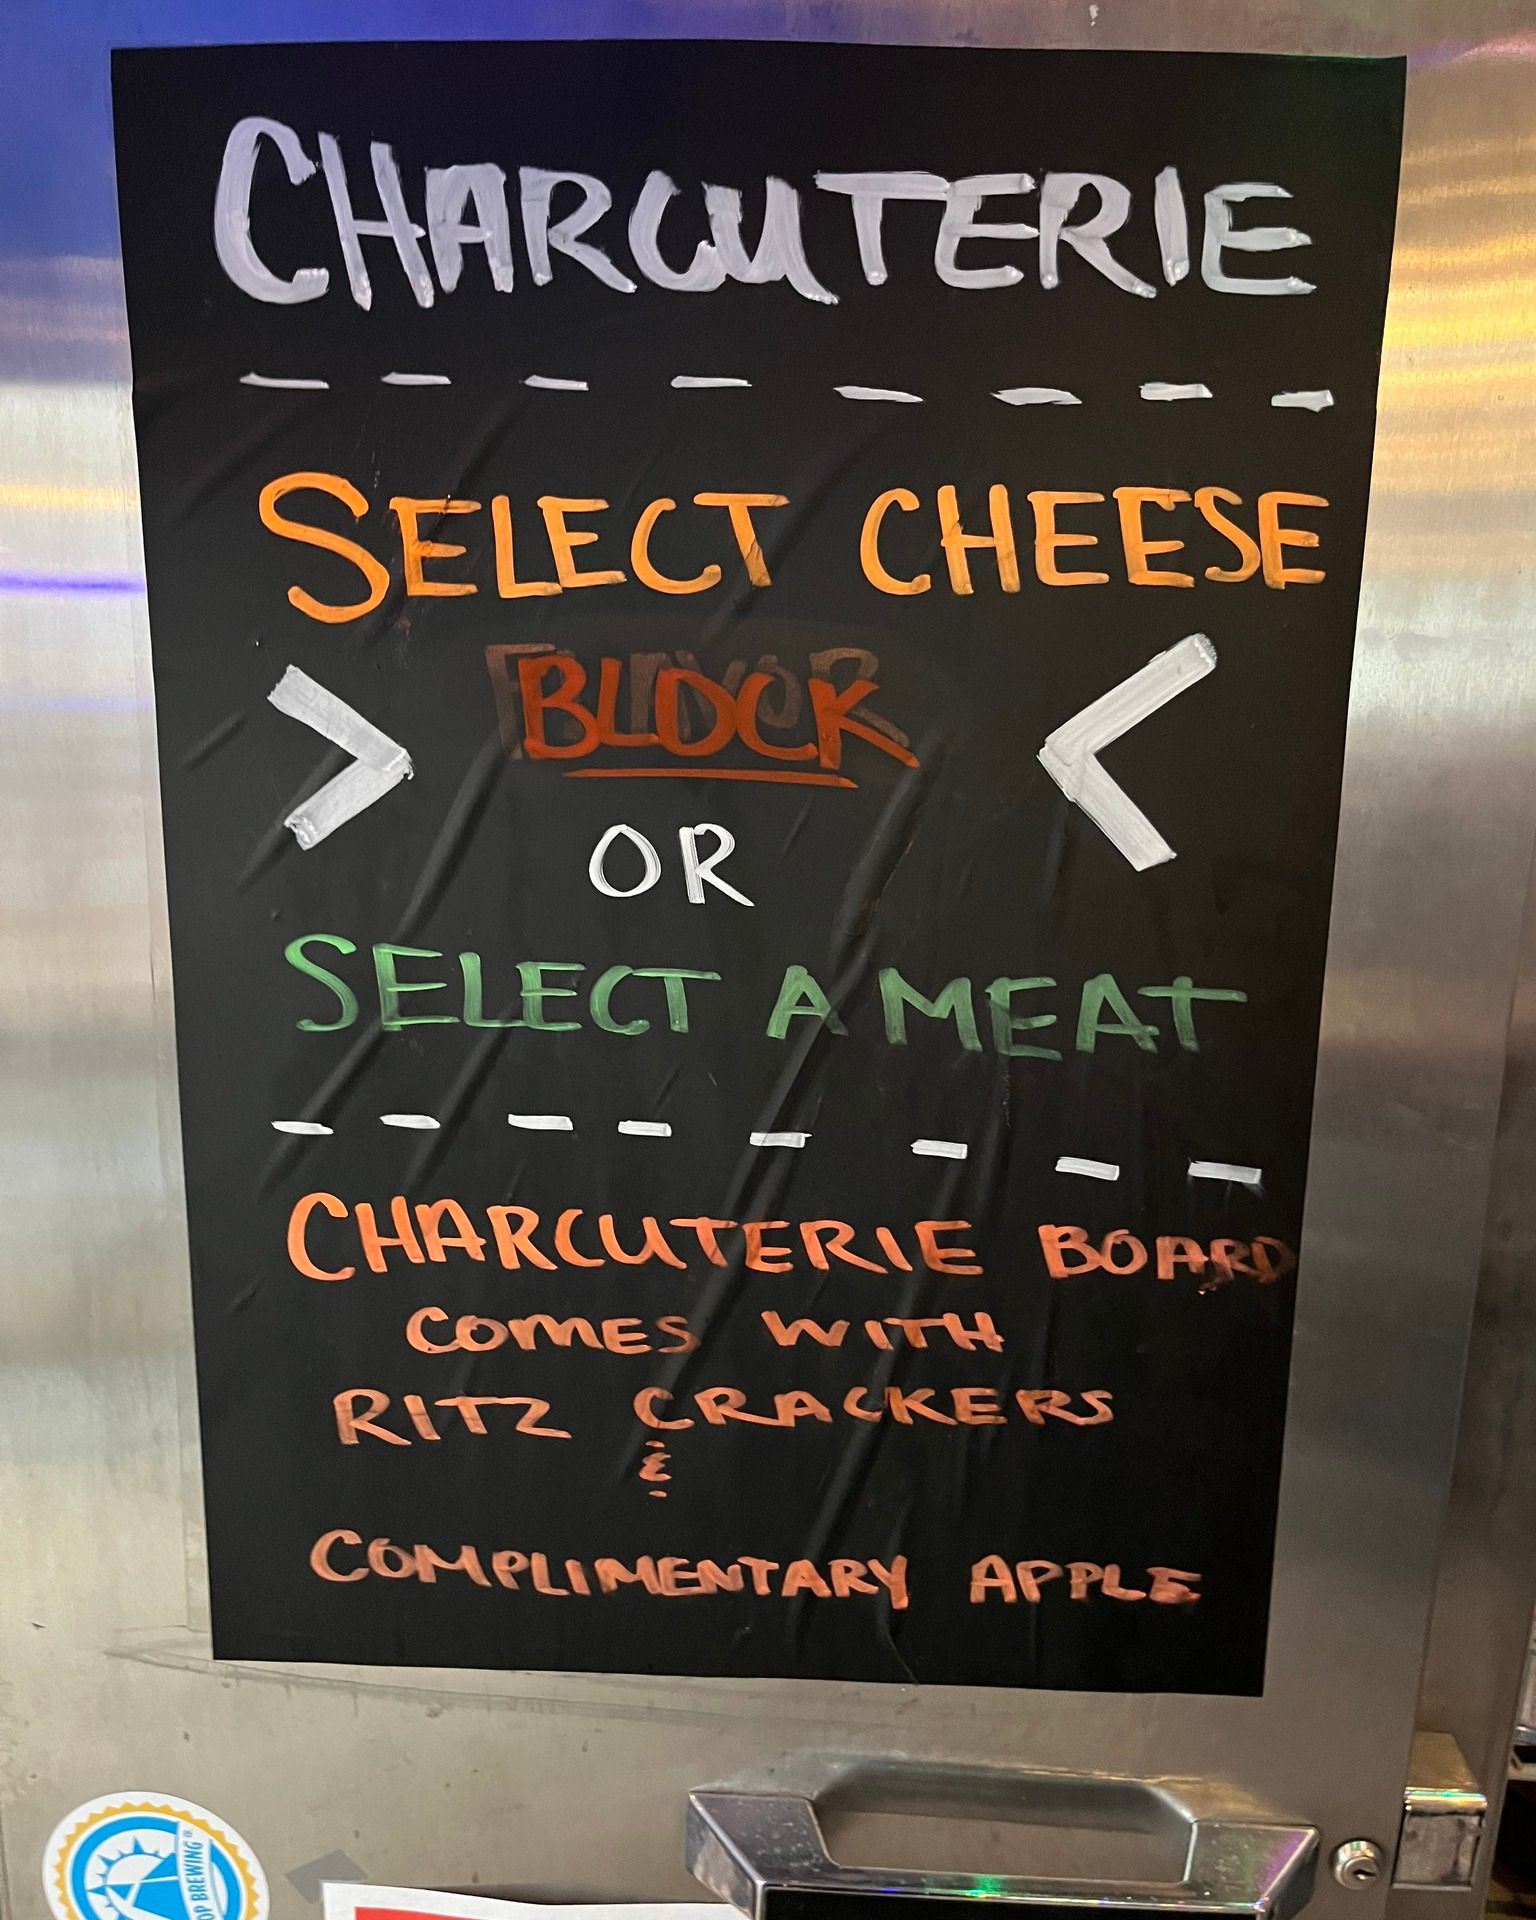 CHARCUTERIE
SELECT CHEESE
BLOCK
OR
SELECT A MEAT
CHARCUTERIE BOARD
COMES WITH
RITZ CRACKERS
&
COMPLIMENTARY APPLE
BREWING Co.